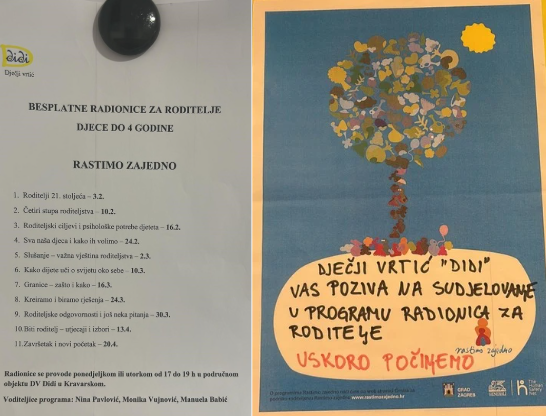 didi
Dječji vrtić
BESPLATNE RADIONICE ZA RODITELJE
DJECE DO 4 GODINE
RASTIMO ZAJEDNO
1. Roditelji 21. stoljeća – 3.2.
2. Četiri stupa roditeljstva – 10.2.
3. Roditeljski ciljevi i psihološke potrebe djeteta – 16.2.
4. Sva naša djeca i kako ih volimo – 24.2.
5. Slušanje – važna vještina roditeljeva – 2.3.
6. Kako dijete uči o svijetu oko sebe – 10.3.
7. Granice – zašto i kako – 16.3.
8. Kreiramo i biramo rješenja – 24.3.
9. Roditeljske odgovornosti i još neka pitanja – 30.3.
10. Biti roditelj – utjecaji i izbori – 13.4.
11. Završetak i novi početak – 20.4.
Radionice se provode ponedjeljkom ili utorkom od 17 do 19 h u područnom
objektu DV Didi u Kravarskom.
Voditeljice programa: Nina Pavlović, Monika Vujnović, Manuela Babić
DJEČJI VRTIĆ "DIDI"
VAS POZIVA NA SUDJELOVANJE
U PROGRAMU RADIONICA ZA
RODITELJE
rastimo zajedno
USKORO POČINJEMO
GRAD
ZAGREB